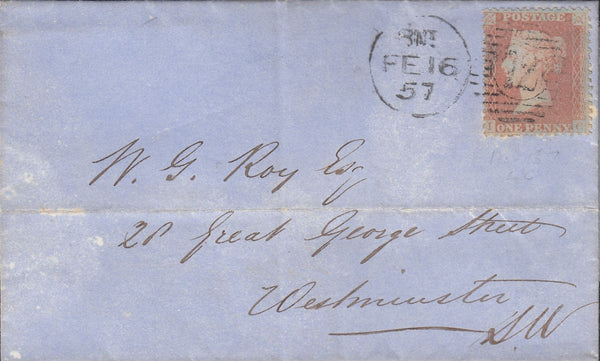 BNT
FE 16
57
POSTAGE
ONE PENNY
W. G. Roy Esq
28 Great George Street
Westminster
S.W